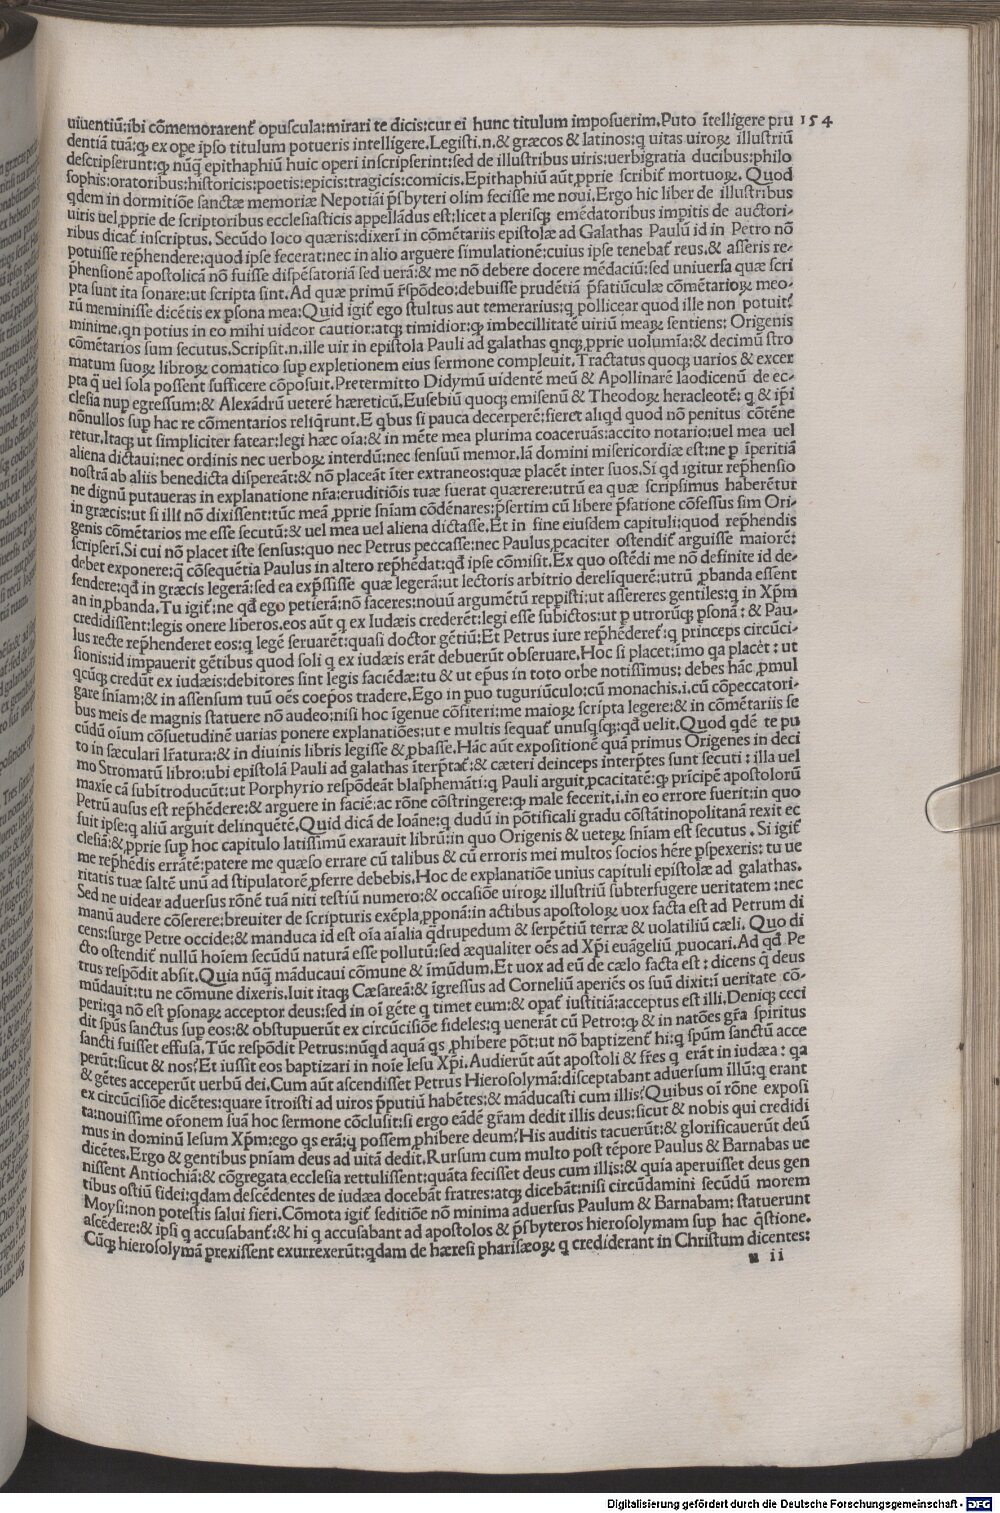 uiuentiū:ibi cōmemorarent̄ opuscula:mirari te dicis:cur ei hunc titulum imposuerim.Puto ītelligere pru 154
dentiā tuā:ꝙ ex ope ipso titulum potueris intelligere.Legisti.n.& græcos & latinos:q uitas uiroꝝ illustriū
descripserunt:ꝙ nūq̄ epithaphiū huic operi inscripserint:sed de illustribus uiris:uerbigratia ducibus:philo
sophis:oratoribus:historicis:poetis:epicis:tragicis:comicis.Epithaphiū aūt ꝓprie scribit̄ mortuoꝝ. Quod
qdem in dormitiōe sanctæ memoriæ Nepotiāi p̄sbyteri olim fecisse me noui.Ergo hic liber de illustribus
uiris uel ꝓprie de scriptoribus ecclesiasticis appellādus est:licet a plerisqꝫ emēdatoribus impitis de auctori-
ribus dicat̄ inscriptus. Secūdo loco quæris:dixerī in cōmētariis epistolæ ad Galathas Paulū id in Petro nō
potuisse rep̄hendere:quod ipse fecerat:nec in alio arguere simulationē:cuius ipse tenebat̄ reus.& asseris re-
p̄hensionē apostolicā nō fuisse dispēsatoriā sed uerā:& me nō debere docere mēdaciū:sed uniuersa quæ scri
pta sunt ita sonare:ut scripta sint.Ad quæ primū r̄spōdeo:debuisse prudētiā p̄fatiūculæ cōmētarioꝝ meo-
rū meminisse dicētis ex psona mea:Quid igit̄ ego stultus aut temerarius:q pollicear quod ille non potuit?
minime.qn potius in eo mihi uideor cautior:atqꝫ timidior:ꝙ imbecillitatē uiriū meaꝝ sentiens: Origenis
cōmētarios sum secutus.Scripsit.n.ille uir in epistola Pauli ad galathas qnqꝫ ꝓprie uolumīa:& decimū stro
matum suoꝝ libroꝝ comatico sup expletionem eius sermone compleuit.Tractatus quoqꝫ uarios & excer
pta q̄ uel sola possent sufficere cōposuit.Pretermitto Didymū uidentē meū & Apollinarē laodicenū de ec-
clesia nup egressum:& Alexādrū ueterē hæreticū.Eusebiū quoqꝫ emisenū & Theodoꝝ heracleotē: q & ip̄i
nōnullos sup hac re cōmentarios reliqrunt.E qbus si pauca decerperē:fieret aliqd quod nō penitus cōtēne
retur.Itaqꝫ ut simpliciter fatear:legi hæc oīa:& in mēte mea plurima coaceruās:accito notario:uel mea uel
aliena dictaui:nec ordinis nec uerboꝝ interdū:nec sensuū memor.Iā domini misericordiæ est:ne p īperitiā
nostrā ab aliis benedicta dispereāt:& nō placeāt īter extraneos:quæ placēt inter suos.Si qd igitur rep̄hensio
ne dignū putaueras in explanatione nr̄a:eruditiōis tuæ fuerat quærere:utrū ea quæ scripsimus haberētur
in græcis:ut si illi nō dixissent:tūc meā ꝓprie sniam cōdēnares:p̄sertim cū libere p̄fatione cōfessus sim Ori-
genis cōmētarios me esse secutū:& uel mea uel aliena dictasse.Et in fine eiusdem capituli:quod rep̄hendis
scripserī.Si cui nō placet iste sensus:quo nec Petrus peccasse:nec Paulus ꝓcaciter ostendit̄ arguisse maiorē:
debet exponere:q̄ cōsequētia Paulus in altero rep̄hēdat:qđ ipse cōmisit.Ex quo ostēdi me nō definite id de-
fendere:qđ in græcis legerā:sed ea exp̄ssisse quæ legerā:ut lectoris arbitrio derelīquerē:utrū ꝓbanda essent
an īꝓbanda.Tu igit̄:ne qđ ego petierā:nō faceres:nouū argumētū reppisti:ut assereres gentiles:q in Xp̄m
credidissent:legis onere liberos.eos aūt q ex Iudæis crederēt:legi esse subictos:ut p utrorūqꝫ psonā: & Pau-
lus recte rep̄henderet eos:q legē seruarēt:quasi doctor gētiū:Et Petrus iure rep̄hēderet̄:q princeps circūci-
sionis:id impauerit gētibus quod soli q ex iudæis erāt debuerūt obseruare.Hoc si placet:īmo qa placēt: ut
qcūqꝫ credūt ex iudæis:debitores sint legis faciēdæ:tu & ut ep̄us in toto orbe notissimus: debes hāc ꝓmul
gare sniam:& in assensum tuū oēs coep̄os tradere.Ego in puo tuguriūculo:cū monachis.i.cū cōpeccatori-
bus meis de magnis statuere nō audeo:nisi hoc īgenue cōfiteri:me maioꝝ scripta legere:& in cōmētariis se
cūdū oium cōsuetudinē uarias ponere explanatiōes:ut e multis sequat̄ unusqsqꝫ:qđ uelit.Quod qdē te pu
to in sæculari lr̄atura:& in diuinis libris legisse & ꝓbasse.Hāc aūt expositionē quā primus Origenes in deci
mo Stromatū libro:ubi epistolā Pauli ad galathas īterp̄tat̄:& cæteri deinceps interp̄tes sunt secuti: illa uel
maxie cā subītroducūt:ut Porphyrio respōdeāt blasphemāti:q Pauli arguit ꝓcacitatē:ꝙ prīcipē apostolorū
Petrū ausus est rep̄hēdere:& arguere in faciē:ac rōne cōstringere:ꝙ male fecerit.i.in eo errore fuerit:in quo
fuit ipse:q aliū arguit delinquētē.Quid dicā de Ioāne:q dudū in pōtificali gradu cōstātinopolitanā rexit ec
clesiā:& ꝓprie sup hoc capitulo latissimū exarauit librū:in quo Origenis & ueteꝝ sniam est secutus. Si igit̄
me rep̄hēdis errātē:patere me quæso errare cū talibus & cū erroris mei multos socios hēre pspexeris: tu ue
ritatis tuæ saltē unū ad stipulatorē ꝓferre debebis.Hoc de explanatiōe unius capituli epistolæ ad galathas.
Sed ne uidear aduersus rōnē tuā niti testiū numero:& occasiōe uiroꝝ illustriū subterfugere ueritatem :nec
manū audere cōserere:breuiter de scripturis exēpla ꝓponā:in actibus apostoloꝝ uox facta est ad Petrum di
cens:surge Petre occide:& manduca id est oīa aīalia qđrupedum & serpētiū terræ & uolatiliū cæli. Quo di
cto ostendit̄ nullū hoīem secūdū naturā esse pollutū:sed æqualiter oēs ad Xp̄i euāgeliū ꝓuocari.Ad qđ Pe
trus respōdit absit.Quia nūq̄ māducaui cōmune & īmūdum.Et uox ad eū de cælo facta est: dicens q̄ deus
mūdauit:tu ne cōmune dixeris.Iuit itaqꝫ Cæsareā:& īgressus ad Corneliū aperiēs os suū dixit:ī ueritate cō-
peri:qa nō est psonaꝝ acceptor deus:sed in oī gēte q timet eum:& opat̄ iustitiā:acceptus est illi.Deniqꝫ ceci
dit sp̄us sanctus sup eos:& obstupuerūt ex circūcisiōe fideles:q uenerāt cū Petro:ꝙ & in natōes gr̄a spiritus
sancti fuisset effusa.Tūc respōdit Petrus:nūqd aquā qs ꝓhibere pōt:ut nō baptizent̄ hi:q sp̄um sanctū acce
perūt:sicut & nos?Et iussit eos baptizari in noīe Iesu Xp̄i.Audierūt aūt apostoli & fr̄es q erāt in iudæa: qa
& gētes acceperūt uerbū dei.Cum aūt ascendisset Petrus Hierosolymā:disceptabant aduersum illū:q erant
ex circūcisiōe dicētes:quare ītroisti ad uiros p̄putiū habētes:& māducasti cum illis?Quibus oī rōne exposi
ta:nouissime or̄onem suā hoc sermone cōclusit:si ergo eādē gr̄am dedit illis deus:sicut & nobis qui credidi
mus in dominū Iesum Xp̄m:ego qs erā:q possem ꝓhibere deum?His auditis tacuerūt:& glorificauerūt deū
dicētes.Ergo & gentibus pniam deus ad uitā dedit.Rursum cum multo post tēpore Paulus & Barnabas ue
nissent Antiochiā:& cōgregata ecclesia rettulissent:quāta fecisset deus cum illis:& quia aperuisset deus gen
tibus ostiū fidei:qdam descēdentes de iudæa docebāt fratres:atqꝫ dicebāt:nisi circūdamini secūdū morem
Moysi:non potestis salui fieri.Cōmota igit̄ seditiōe nō minima aduersus Paulum & Barnabam: statuerunt
ascēdere:& ipsi q accusabant̄:& hi q accusabant ad apostolos & p̄sbyteros hierosolymam sup hac q̄stione.
Cūqꝫ hierosolymā prexissent exurrexerūt:qdam de hæresi pharisæoꝝ q crediderant in Christum dicentes:
ii